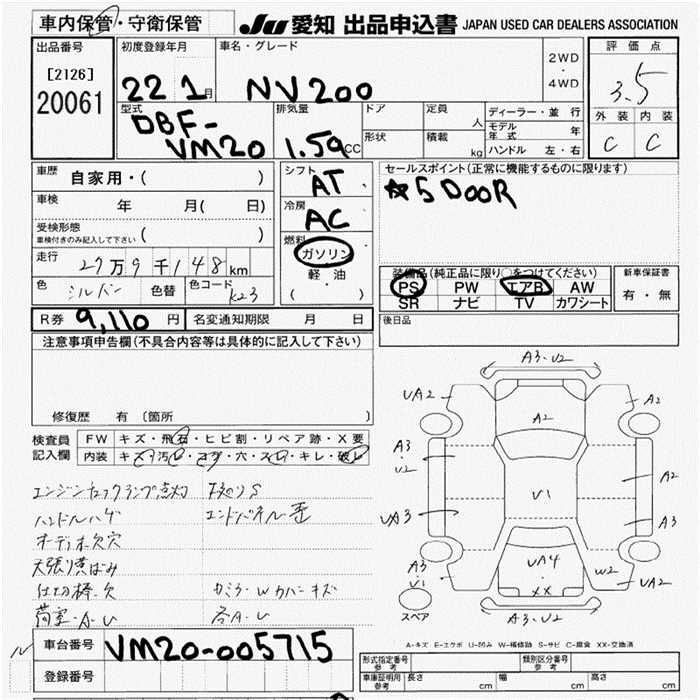 車内保管・守衛保管
JU 愛知 出品申込書 JAPAN USED CAR DEALERS ASSOCIATION
出品番号
[2126]
20061
初度登録年月
22 1月
車名・グレード
NV200
2WD
・
4WD
評価点
3.5
外装 内装
C C
型式
DBF-
VM20
排気量
1.59CC
ドア
形状
定員 人
積載 kg
ディーラー・並行
モデル年式 年
ハンドル 左・右
車歴 自家用・( )
車検 年 月( 日)
受検形態
車検付きのみ記入して下さい ( )
走行 27万9千148km
色 シルバー 色替 色コード K23
シフト AT
冷房 AC
燃料
ガソリン
軽・油
( )
セールスポイント(正常に機能するものに限ります)
☆5DOOR
装備品(純正品に限り○をつけてください)
PS PW エアB AW
SR ナビ TV カワシート
新車保証書
有・無
R券 9,110円 名変通知期限 月 日
後日品
注意事項申告欄(不具合内容等は具体的に記入して下さい)
修復歴 有〔箇所
検査員
記入欄
FW キズ・飛石・ヒビ割・リペア跡・X要
内装 キズ・汚レ・コゲ・穴・スレ・キレ・破レ
エンジンチェックランプ点灯 下廻りS
ハンドルハゲ エンドパネル歪
オーディオ欠穴
天張り黄ばみ
仕切棒欠 カミラーWカバーキズ
荷室・A・U 各A・U
A3・U2
UA2
A2
A2
A3
・
U2
A2
U1
UA3
A3
UA4
XX
W2
A3
・
U1
UA2
A3・U2
スペア
A-キズ E-エクボ U-凹み W-補修跡 S-サビ C-腐食 XX-交換済
車台番号 VM20-005715
登録番号
形式指定番号
参考
類別区分番号
参考
車庫証明用
参考
長さ cm 幅 cm 高さ cm